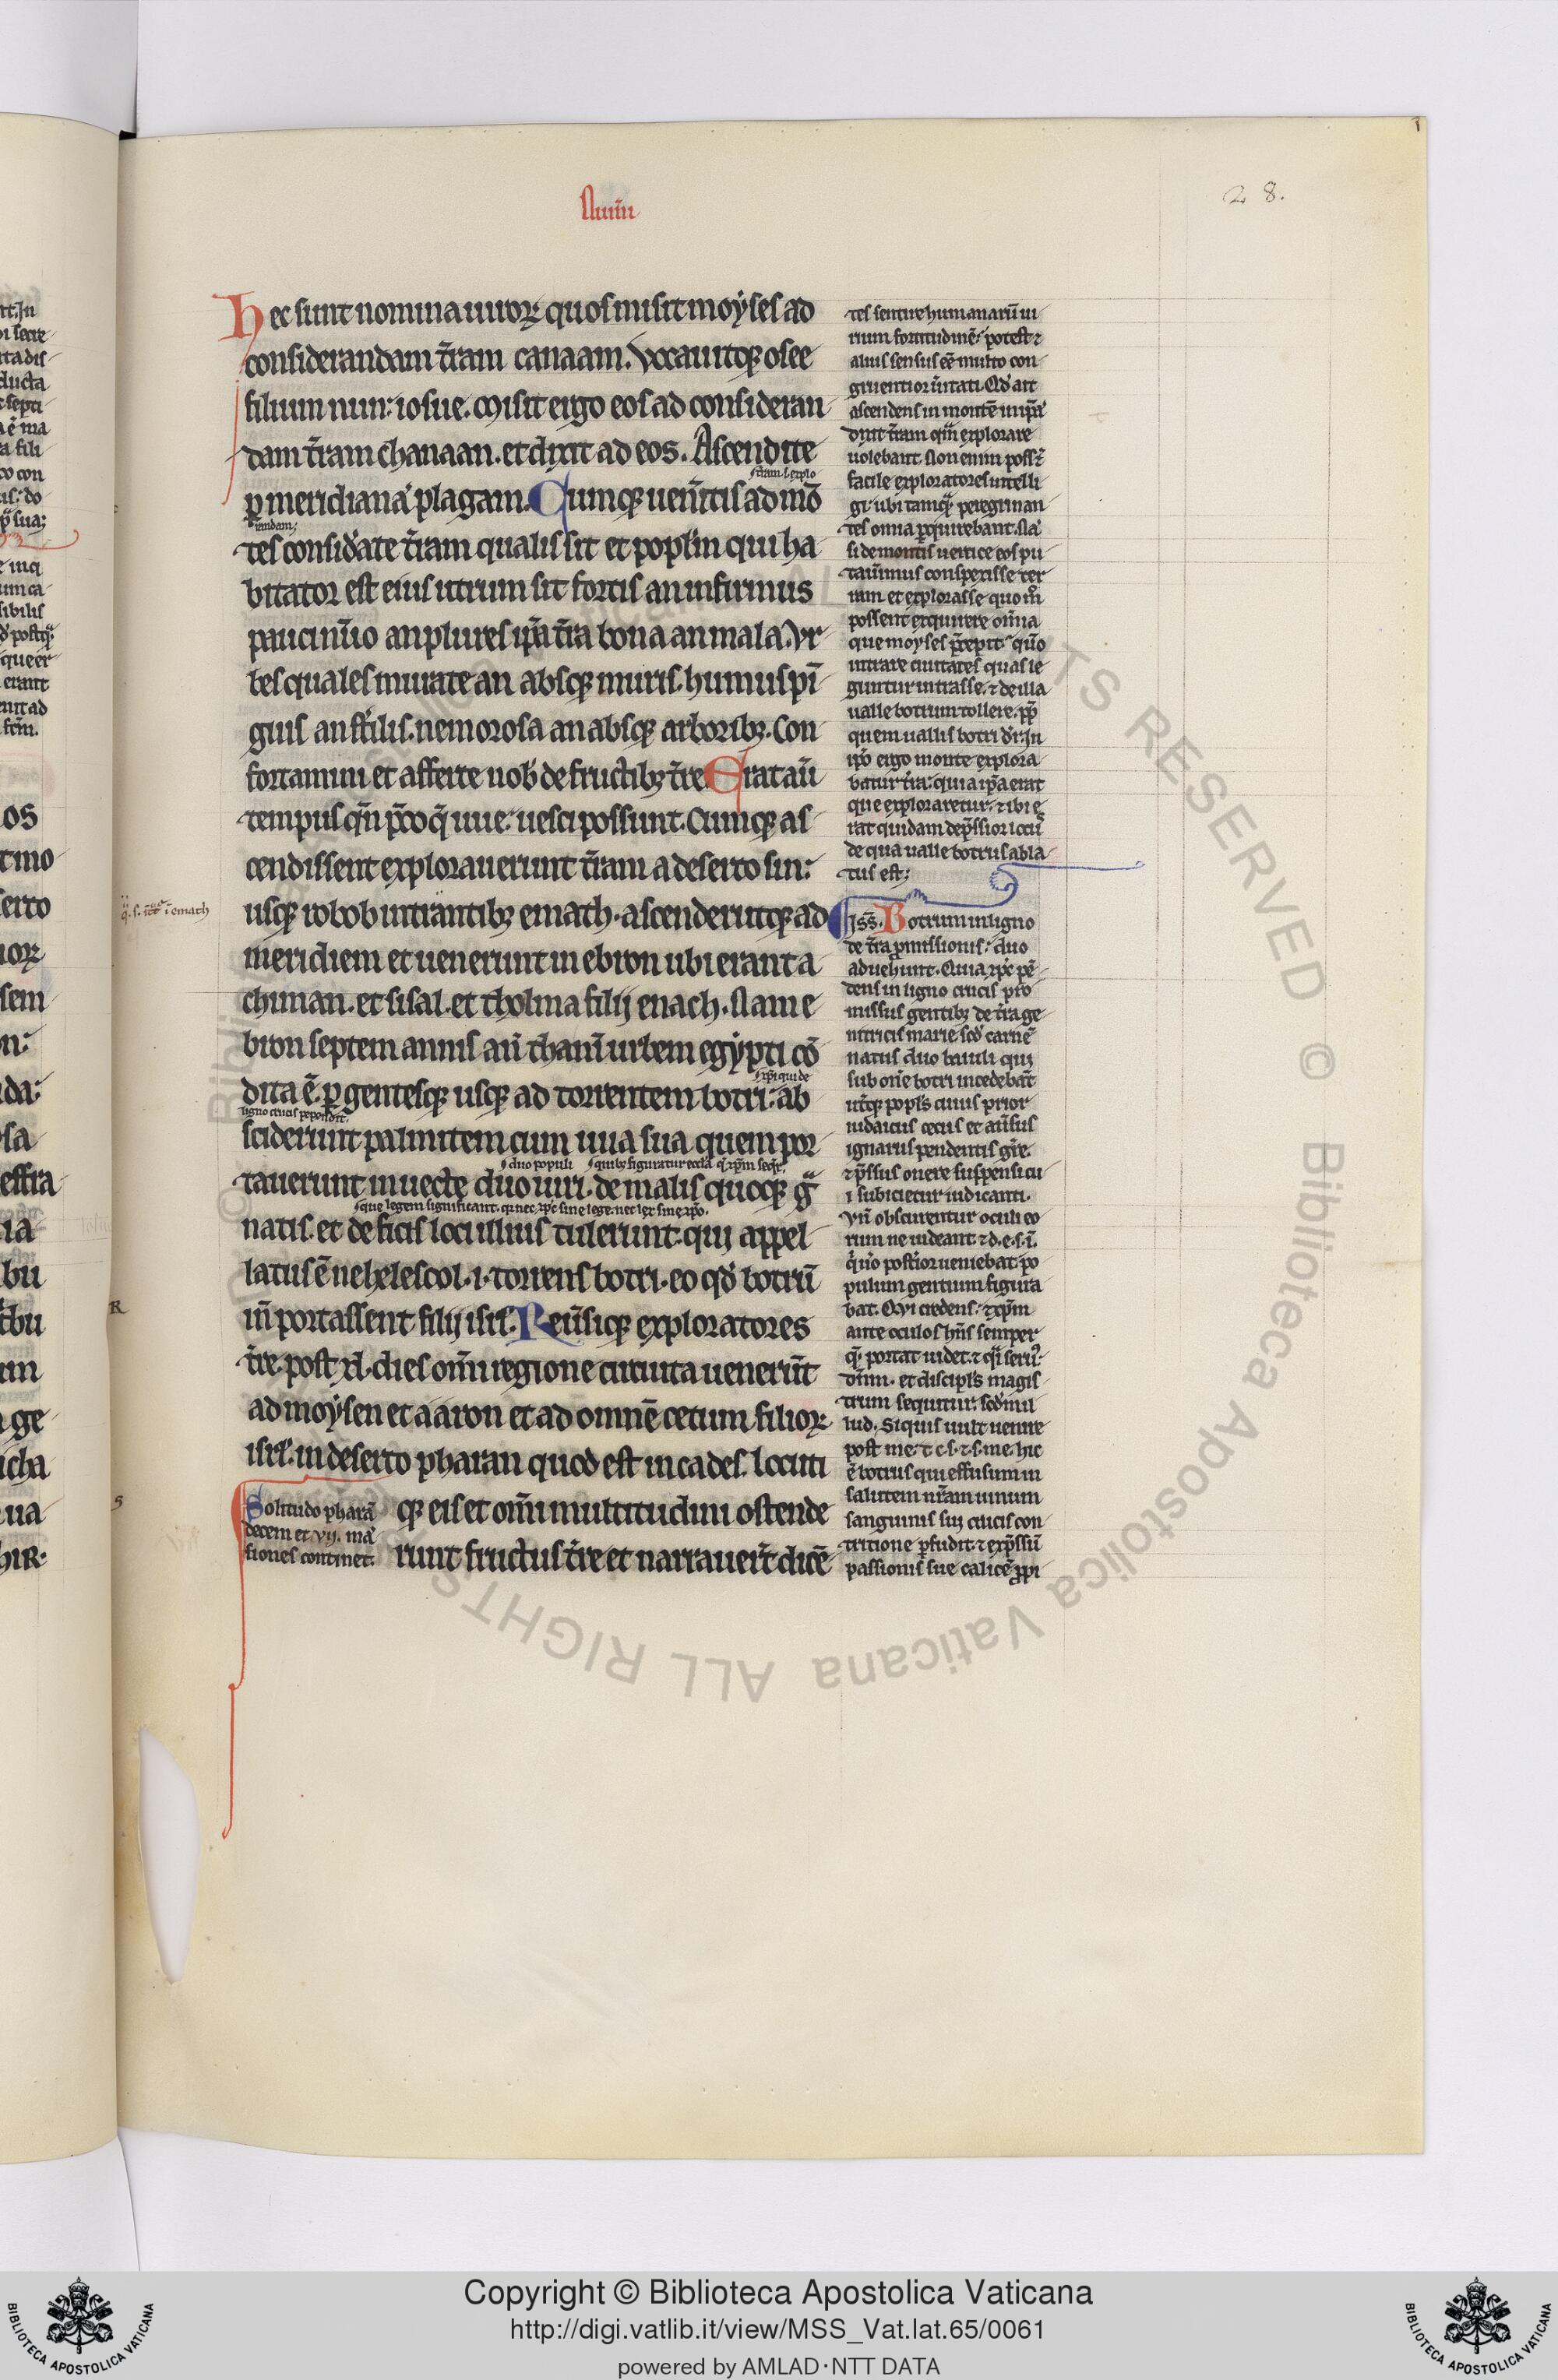 Num̅
28.
hec sunt nomina uiroꝝ quos misit moyses ad
considerandam t̅ram canaam. Vocauitqꝫ osee
filium nun: iosue. Misit ergo eos ad consideran
dam t̅ram chanaan. et dixit ad eos. Ascendite
ꝑ meridiana̅ plagam. Cumqꝫ uen̅itis ad mo̅
tes consid̾ate t̅ram qualis sit et popl̅m qui ha
bitator est eius utrum sit fortis an infirmus
pauci nu̅o an plures ip̅a t̅ra bona an mala. Vr
bes quales murate an absqꝫ muris. humus pi̅
guis an st̾ilis. nemorosa an absqꝫ arboribꝫ. Con
fortamini et afferte nob̾ de fructibꝫ t̅re Erat au̅
tempus qn̅ p̅coq̅ uue: uesci possunt. Cumqꝫ as
cendissent explorauerunt t̅ram a deserto sin:
usqꝫ robob intrantibꝫ emath. ascenderu̅tqꝫ ad
meridiem et uenerunt in ebron ubi erant a
chiman. et sisal. et tholma filij enach. Nam e
bron septem annis an̅ thani̅ urbem egypti co̅
dita e̅. ꝑgentesqꝫ usqꝫ ad torrentem botri: ab
sciderunt palmitem cum uua sua quem por
tauerunt in uecte duo uiri. de malis quoqꝫ gͣ
natis. et de ficis loci illius tulerunt. qui appel
latus e̅ nehelescol .i. torrens botri. eo qd̾ botru̅
in̅ portassent filij isr̅l. Reu̅siqꝫ exploratores
t̅re. post xl. dies om̅i regione circuita ueneru̅t
ad moysen et aaron et ad omne̅ cetum filioꝝ
isr̅l. in deserto pharan quod est in cades. locuti
qꝫ eis et om̅i multitudini ostende
runt fructus t̅re et narrauer̅t dice̅
Solitudo phara̅
decem et vij. ma̅
siones continet.
duo populi
ligno crucis pependit.
tes sentire humanaru̅ ui
rium fortitudine̅. potest ⁊
alius sensus ee̅ multo con
gruentior u̅itati. Qd̾ ait
ascendens in monte̅ im̅p̅a
uolebant. Non enim poss̅⁊
facile exploratores intelli
gi: ubi tamqͣ peregrinan
tes omnia ꝑquirebant. Na̅
si de montis uertice eos pu
tau̅imus conspexisse ter
ram et explorasse quom̅
possent exquirere om̅ia
que moyses p̅cepit. quo̅
intrare ciuitates quas le
guntur intrasse. ⁊ de illa
ualle botrum tollere. ꝓp̅
quem uallis botri dr̅. In
ip̅o ergo monte explora
batur t̅ra: quia ip̅a erat
que exploraretur. ⁊ ibi e
rat quidam dep̅ssior locus
de qua ualle botrus abla
tus est;
Botrum in ligno
de t̅ra ꝓmissionis: duo
aduehunt. Quia xp̅c pe̅
dens in ligno crucis pro
missus gentibꝫ de t̅ra ge
nitricis marie scd̾ carne̅
natus duo baiuli qui
sub on̾e botri incedeba̅t
ut̾qꝫ popl̅s cuius prior
iudaicus cecus et au̅sus
ignarus pendentis gr̅e.
⁊ p̅ssus onere suspensi cu
i subicietur iudicanti.
Vn̅ obscurentur oculi eo
rum ne uideant ⁊ d. e. s. i̅.
q̾ u̾o post̾ior ueniebat: po
pulum gentium figura
bat. Qui credens: ⁊ xp̅m
ante oculos hn̅s semper
qͣ portat uidet. ⁊ qͣi seru̾:
dn̅m. et discipl̅s magis
trum sequitur. scd̾m il
lud. Siquis uult uenire
post me. ⁊ c. s. ⁊ s. me. hic
e̅ botrus qui effusum in
salutem nr̅am uinum
sanguinis sui crucis con
tritione ꝓfudit. ⁊ exp̅ssu̅
passionis sue calice̅ ꝓpi
R
s
Copyright © Biblioteca Apostolica Vaticana
http://digi.vatlib.it/view/MSS_Vat.lat.65/0061
powered by AMLAD·NTT DATA